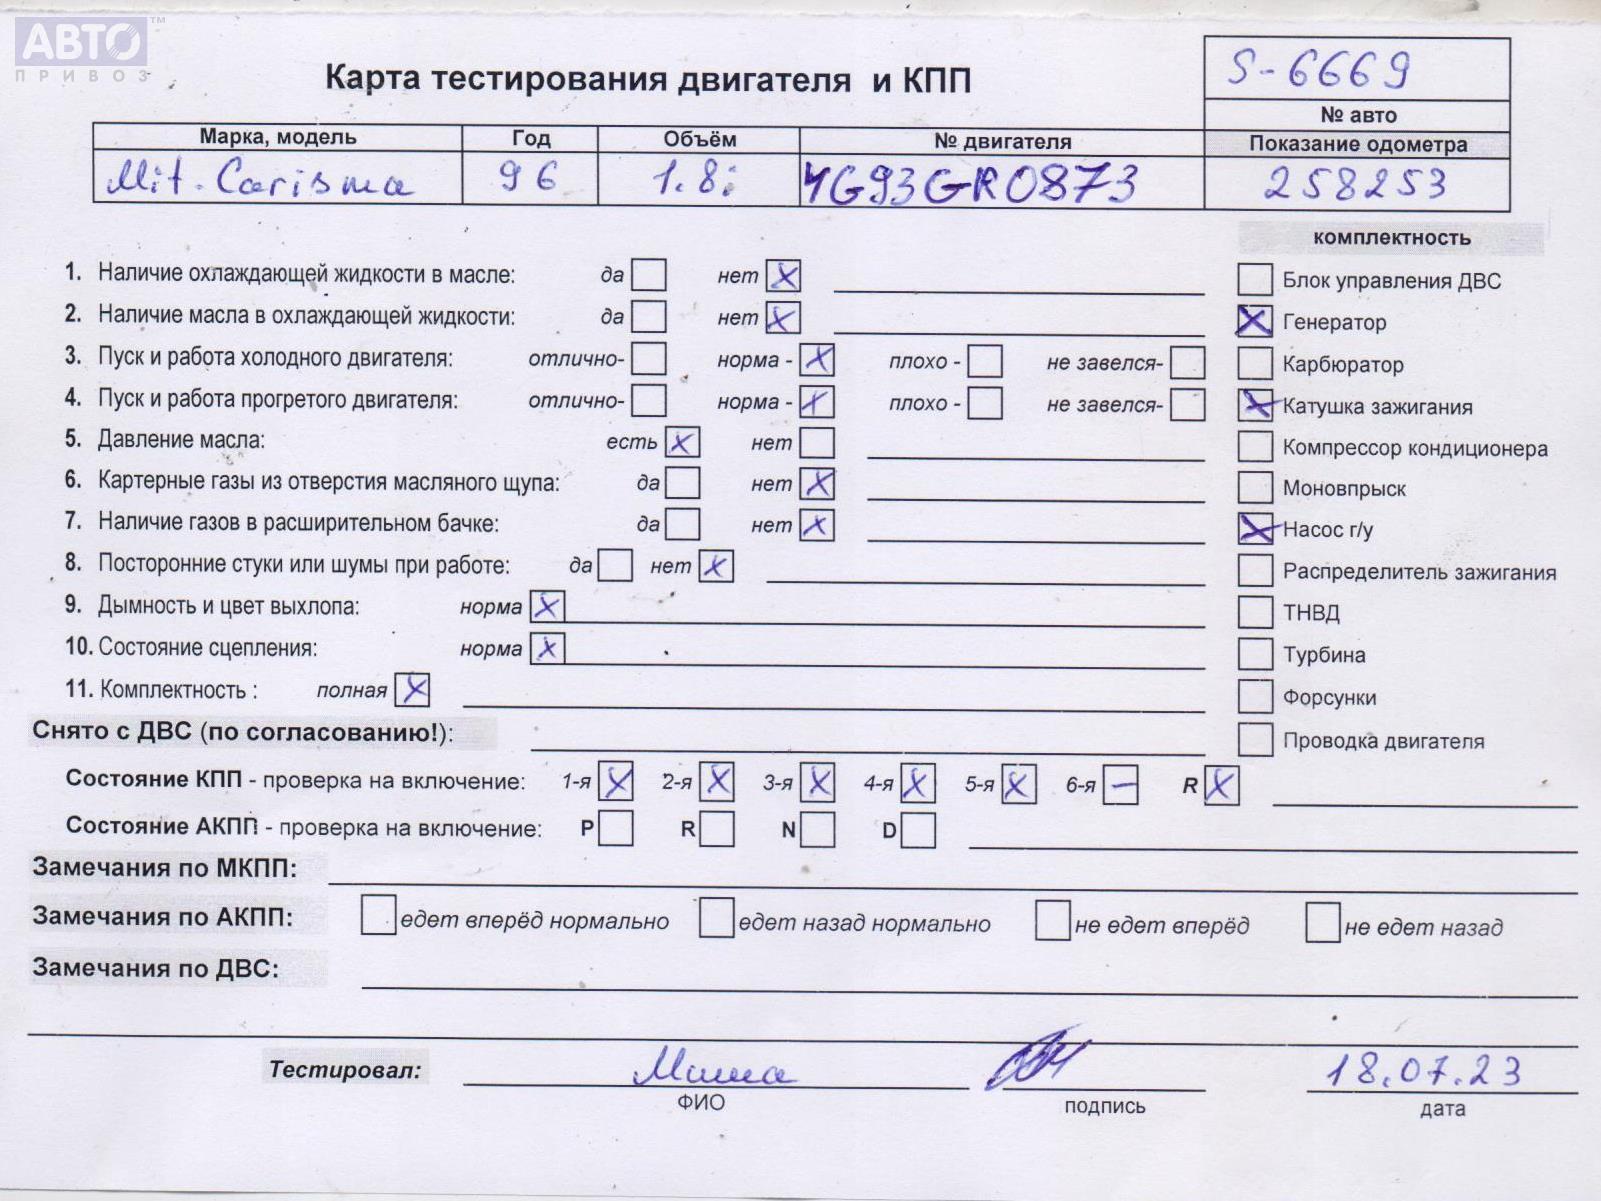 АВТО ™
ПРИВОЗ
Карта тестирования двигателя и КПП
S-6669
№ авто
Марка, модель Год Объём № двигателя Показание одометра
Mit. Carisma 96 1.8i 4G93GR0873 258253
комплектность
1. Наличие охлаждающей жидкости в масле: да нет X Блок управления ДВС
2. Наличие масла в охлаждающей жидкости: да нет X X Генератор
3. Пуск и работа холодного двигателя: отлично- норма - X плохо - не завелся- Карбюратор
4. Пуск и работа прогретого двигателя: отлично- норма - X плохо - не завелся- X Катушка зажигания
5. Давление масла: есть X нет Компрессор кондиционера
6. Картерные газы из отверстия масляного щупа: да нет X Моновпрыск
7. Наличие газов в расширительном бачке: да нет X X Насос г/у
8. Посторонние стуки или шумы при работе: да нет X Распределитель зажигания
9. Дымность и цвет выхлопа: норма X ТНВД
10. Состояние сцепления: норма X Турбина
11. Комплектность : полная X Форсунки
Снято с ДВС (по согласованию!): Проводка двигателя
Состояние КПП - проверка на включение: 1-я X 2-я X 3-я X 4-я X 5-я X 6-я — R X
Состояние АКПП - проверка на включение: P R N D
Замечания по МКПП:
Замечания по АКПП: едет вперёд нормально едет назад нормально не едет вперёд не едет назад
Замечания по ДВС:
Тестировал: Миша 18.07.23
ФИО подпись дата